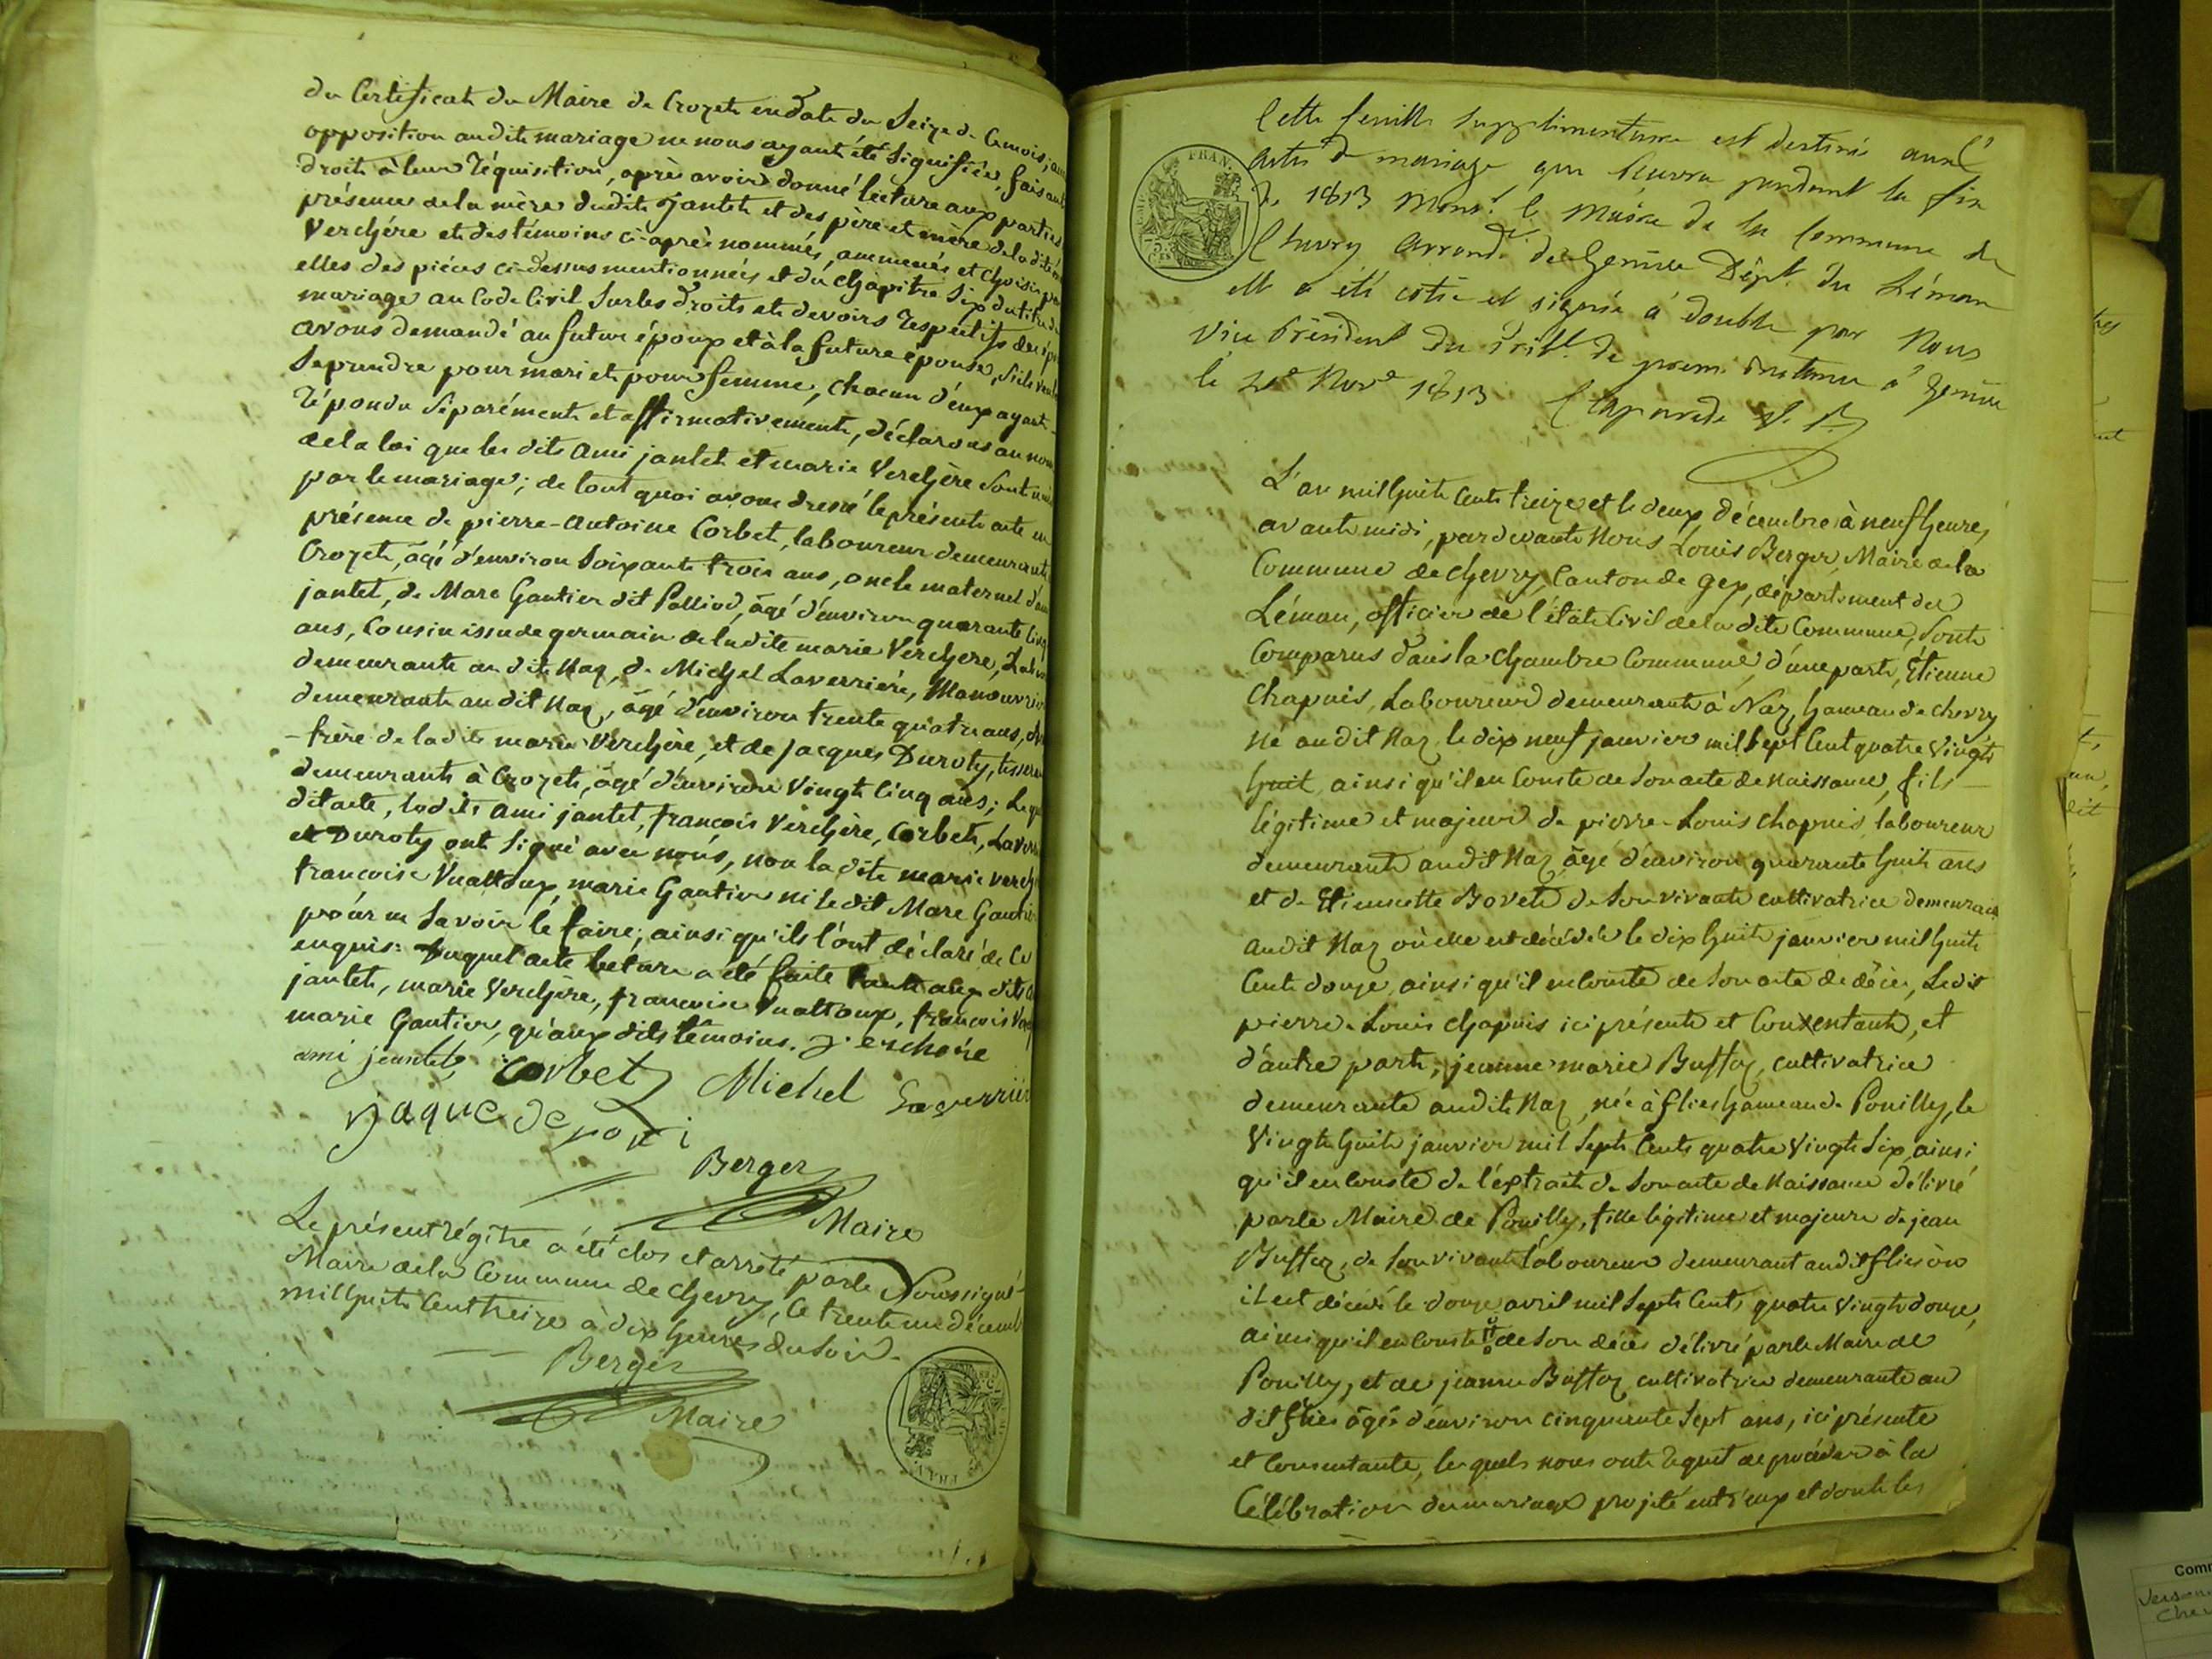 du Certificat du Maire de Crozet en date du Seize de Ce mois;
opposition audit mariage ne nous ayant été Signifiée, faisant
droit à leur réquisition, après avoir donné lecture aux parties
présence de la mère dudit jantet et des père et mère de la dite
Verchère et des témoins ci-après nommés, ammenés et choisis par
elles des pièces ci-dessus mentionnées et du chapitre Six du titre du
mariage au Code Civil Sur les droits et devoirs respectifs des
avons demandé au futur époux et à la future épouse, S'ils
Se prendre pour mari et pour femme, chacun d'eux ayant
répondu Séparément et affirmativement, déclarons au nom
de la loi que les dits ami jantet et marie Verchère Sont unis
par le mariage; de tout quoi avons dressé le présent acte en
présence de pierre-antoine Corbet, laboureur demeurant à
Crozet, âgé d'environ Soixante trois ans, oncle maternel
jantet, de Marc Gautier dit Polliod, âgé d'environ quarante Cinq
ans, Cousin issu de germain de la dite marie Verchère,
demeurant au dit Naz, de Michel Laverrière, Manouvrier
demeurant au dit Naz, âgé d'environ trente quatre ans,
-frère de la dite marie Verchère, et de Jacques Duroty,
demeurant à Crozet, âgé d'environ Vingt Cinq ans;
dit acte, lesdits ami jantet, françois Verchère, Corbet,
et Duroty ont Signé avec nous, non la dite marie
francoise Vuattoux, marie Gautier ni le dit Marc Gautier
pour ne Savoir le faire, ainsi qu'ils l'ont déclaré de Ce
enquis. Duquel acte lecture a été faite tant aux dits
jantet, marie Verchère, francoise Vuattoux, françois
marie Gautier, qu'aux dits témoins.
ami jeantet Corbet Michel Laverrière
jaque
Berger
Maire
Le présent régître a été clos et arrêté par le Soussigné
Maire de la Commune de Chevry, Ce trente un décembre
mil huit Cent treize à dix heures du Soir.
Berger
Maire
Cette feuille Supplementaire est destinée aux
actes de mariage que recevra pendant la fin
de 1813 Mons.r le Maire de la Commune de
Chevry arrond.t de Genève Dépt. du Léman
elle a été cotée et signée à double par Nous
Vice Président du Trib.l de prem. Instance à Genève
le Nov.e 1813 Claparede V. P.
FRAN.
75
L'an mil huit Cent treize et le deux décembre à neuf heures
avant midi, pardevant Nous Louis Berger, Maire de la
Commune de Chevry, Canton de Gex, département du
Léman, officier de l'état Civil de la dite Commune, Sont
Comparus dans la chambre Commune, d'une part, Étienne
Chapuis, Laboureur demeurant à Naz, hameau de Chevry
né audit Naz le dix neuf janvier mil Sept Cent quatre Vingt
huit ainsi qu'il en Conste de Son acte de Naissance, fils
légitime et majeur de pierre-Louis Chapuis, laboureur
demeurant audit Naz, âgé d'environ quarante huit ans
et de Etiennette Bovet de Son vivant cultivatrice demeurant
audit Naz où elle est décédée le dix huit janvier mil huit
Cent douze, ainsi qu'il en Conste de Son acte de décès, Ledit
pierre-Louis Chapuis ici présent et Consentant, et
d'autre part, jeanne marie Buffaz, cultivatrice
demeurante audit Naz, née à flies hameau de Pouilly, le
Vingt huit janvier mil Sept Cent quatre Vingt Six, ainsi
qu'il en Conste de l'extrait de Son acte de Naissance délivré
par le Maire de Pouilly, fille légitime et majeure de jean
Buffaz, de Son vivant laboureur demeurant audit flies où
il est décédé le douze avril mil Sept Cent quatre Vingt douze,
ainsi qu'il en Conste de Son décès délivré par le Maire de
Pouilly, et de jeanne Buffaz cultivatrice demeurante au
dit flies âgée d'environ cinquante Sept ans, ici présente
et Consentante, lesquels nous ont requit de procéder à la
Célébration du mariage projeté entr'eux et dont les